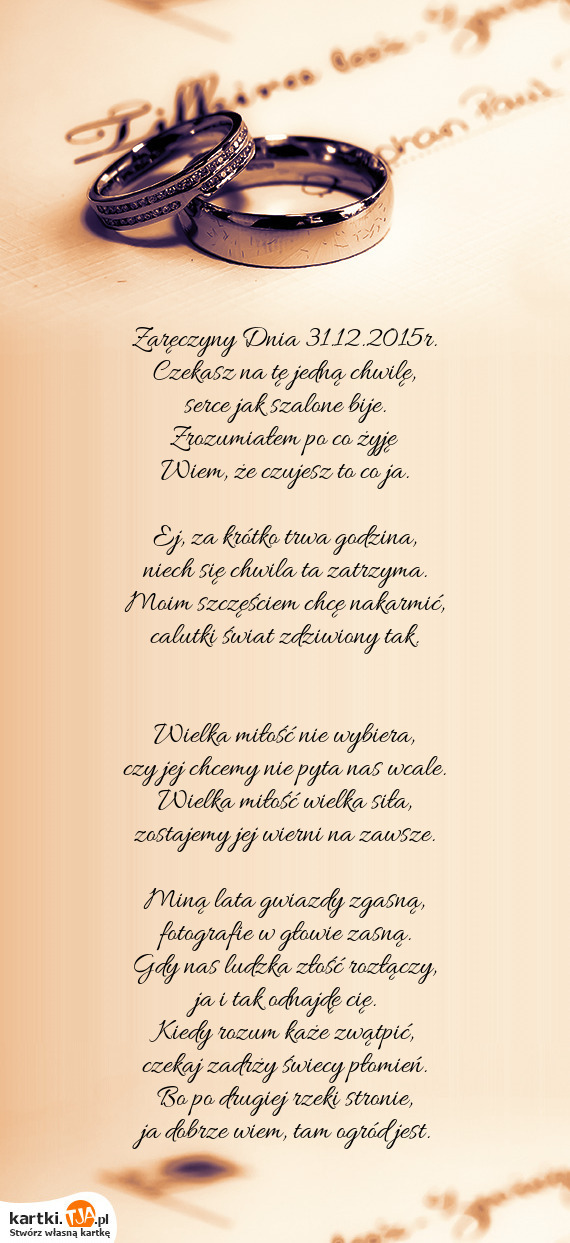 Zaręczyny Dnia 31.12.2015r.
Czekasz na tę jedną chwilę,
serce jak szalone bije.
Zrozumiałem po co żyję
Wiem, że czujesz to co ja.
Ej, za krótko trwa godzina,
niech się chwila ta zatrzyma.
Moim szczęściem chcę nakarmić,
calutki świat zdziwiony tak.
Wielka miłość nie wybiera,
czy jej chcemy nie pyta nas wcale.
Wielka miłość wielka siła,
zostajemy jej wierni na zawsze.
Miną lata gwiazdy zgasną,
fotografie w głowie zasną.
Gdy nas ludzka złość rozłączy,
ja i tak odnajdę cię.
Kiedy rozum każe zwątpić,
czekaj zadrży świecy płomień.
Bo po drugiej rzeki stronie,
ja dobrze wiem, tam ogród jest.
kartki.TJA.pl
Stwórz własną kartkę